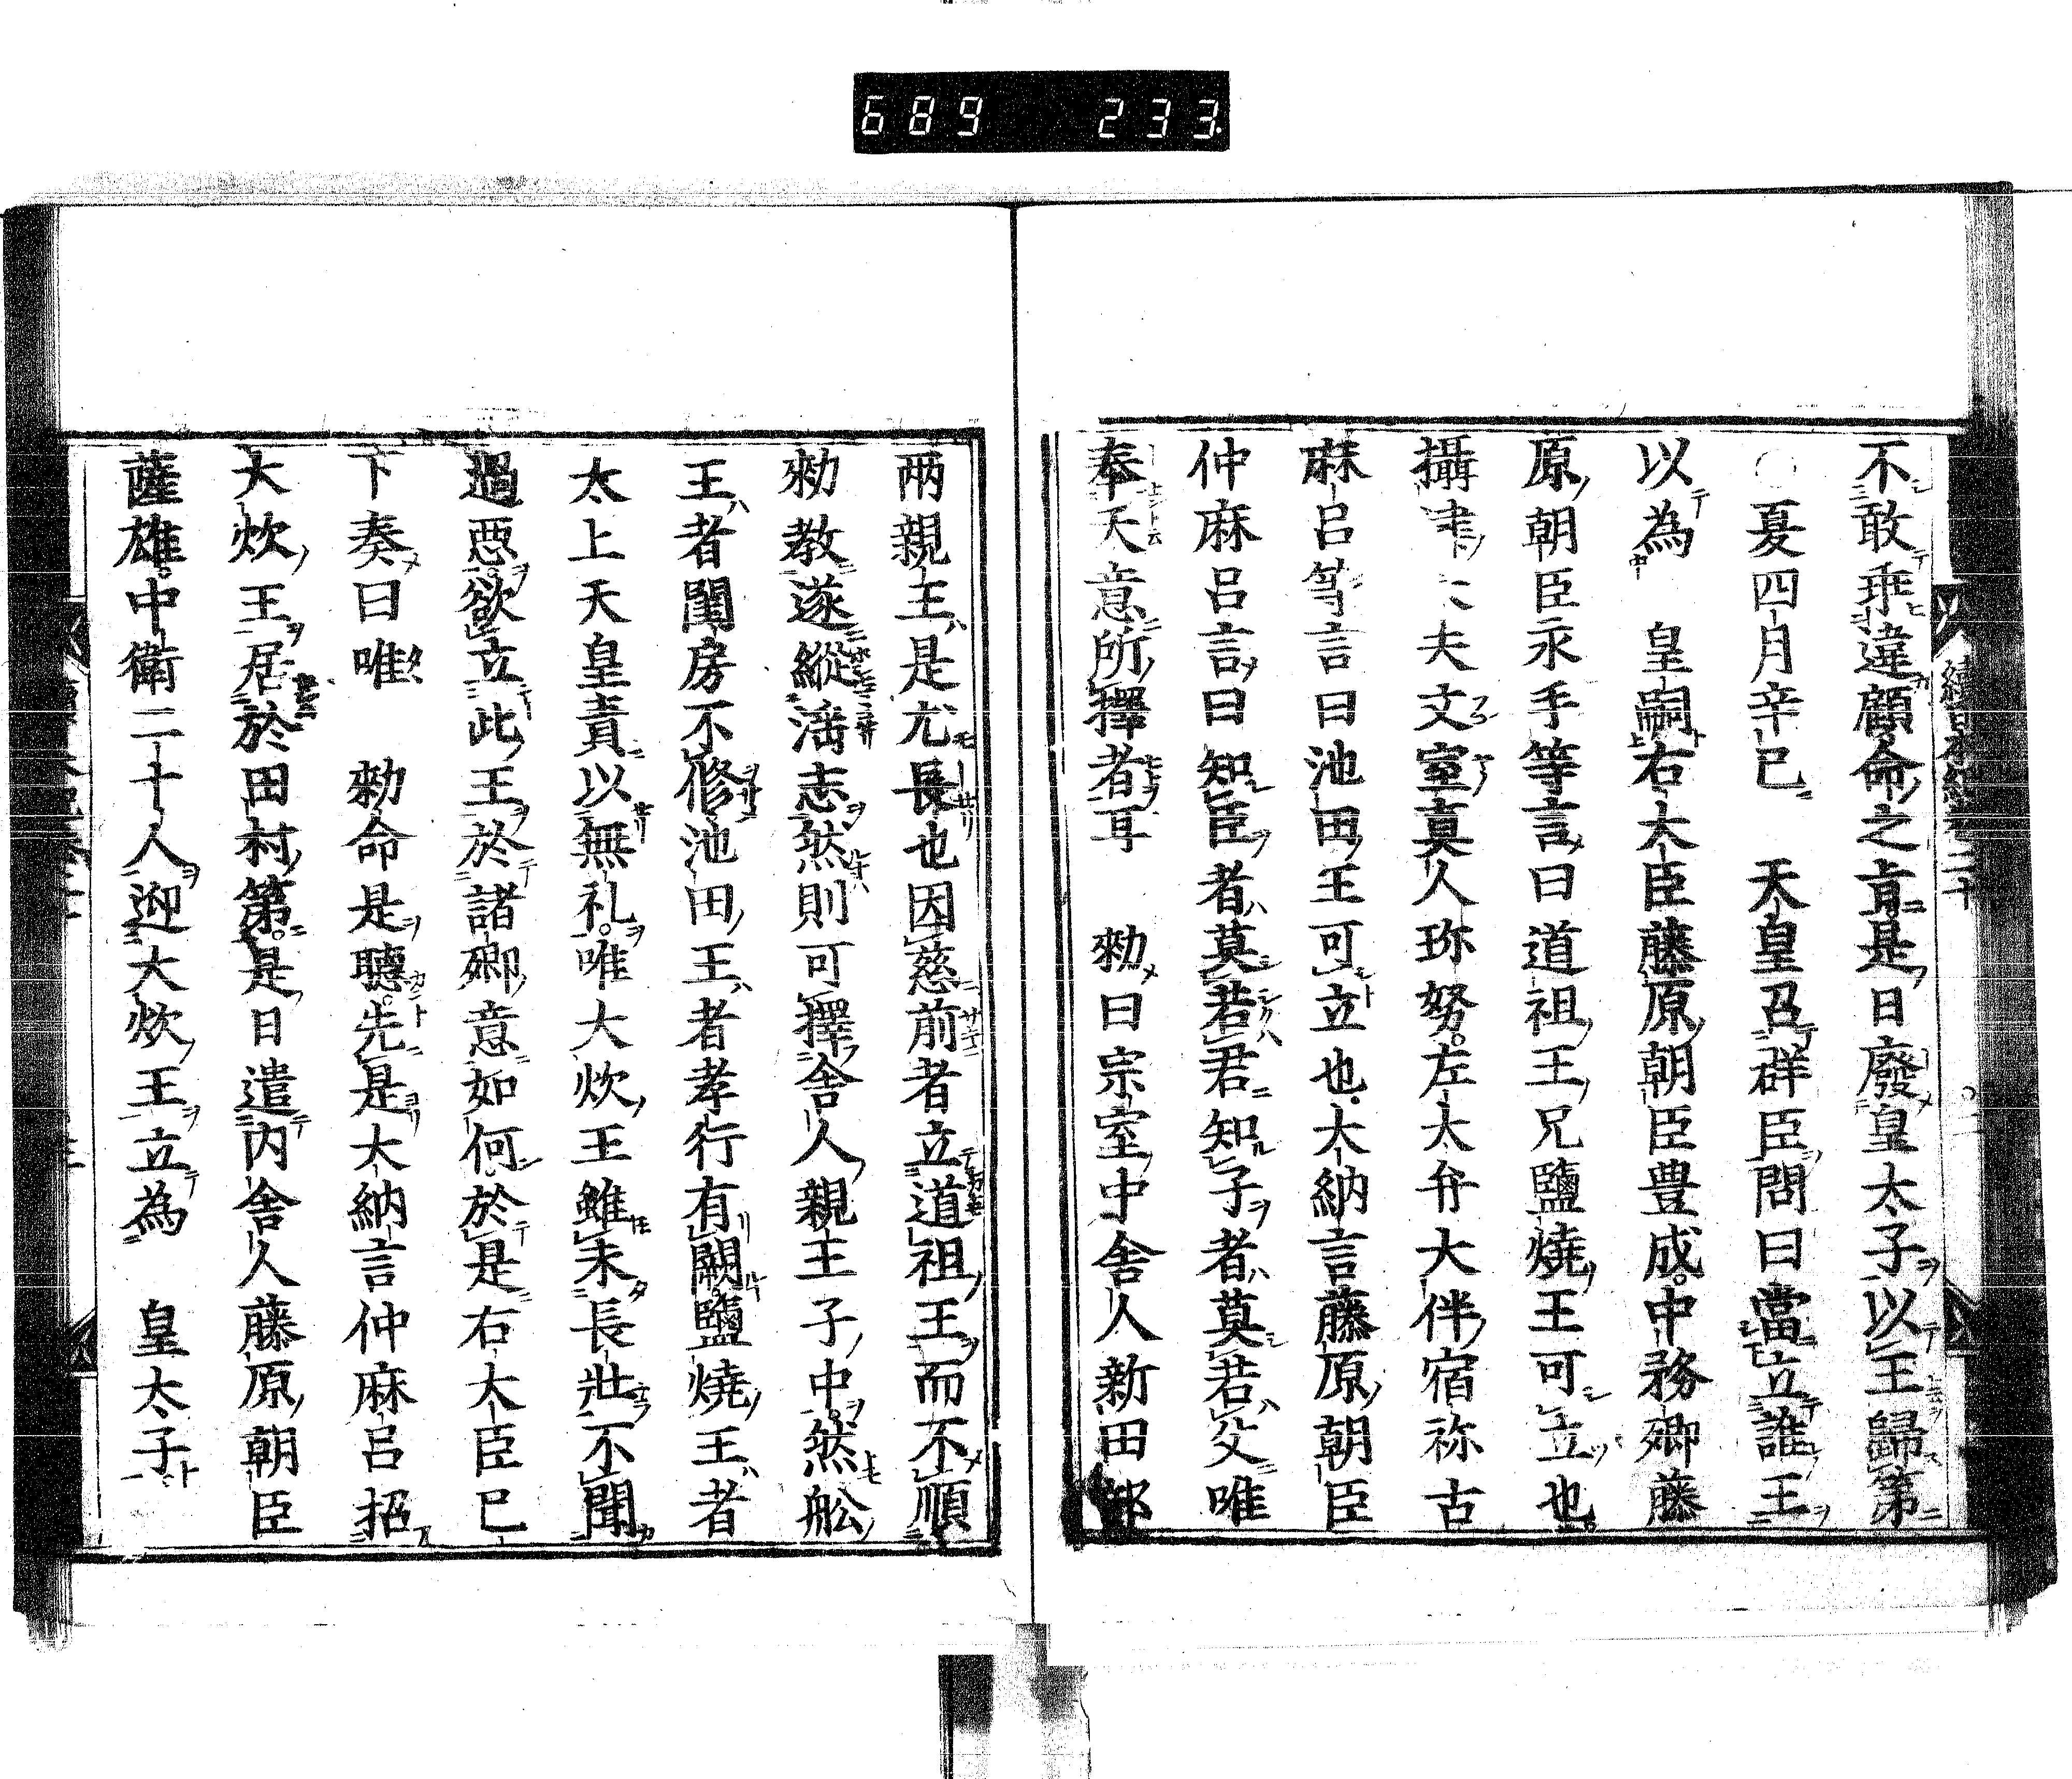 689 233
不敢乖違顧命之旨是日廢皇太子以王歸第
○夏四月辛巳 天皇召群臣問曰當立誰王
以為 皇嗣右大臣藤原朝臣豊成中務卿藤
原朝臣永手等言曰道祖王兄鹽燒王可立也
攝津大夫文室真人珎努左大弁大伴宿祢古
麻呂等言曰池田王可立也大納言藤原朝臣
仲麻呂言曰知臣者莫若君知子者莫若父唯
奉天意所擇者耳 勅曰宗室中舎人新田部
两親王是尤長也因慈前者立道祖王而不順
勅教遂縱淫志然則可擇舎人親王子中然舩
王者閨房不修池田王者孝行有闕鹽燒王者
太上天皇責以無礼唯大炊王雖未長壯不聞
過惡欲立此王於諸卿意如何於是右大臣已
下奏曰唯 勅命是聽先是大納言仲麻呂招
大炊王居於田村第是日遣内舎人藤原朝臣
薩雄中衛二十人迎大炊王立為 皇太子